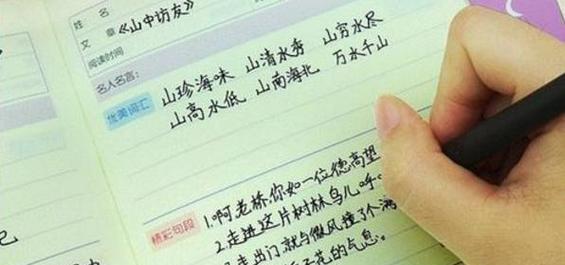 姓 名
文 章《山中访友》
阅读时间
名人名言:
优美词汇 山珍海味 山清水秀 山穷水尽
山高水低 山南海北 万水千山
精彩句段 1.啊老桥,你如一位德高望
2.走进这片树林鸟儿呼
走出门,就与微风撞了个满
花的气息。